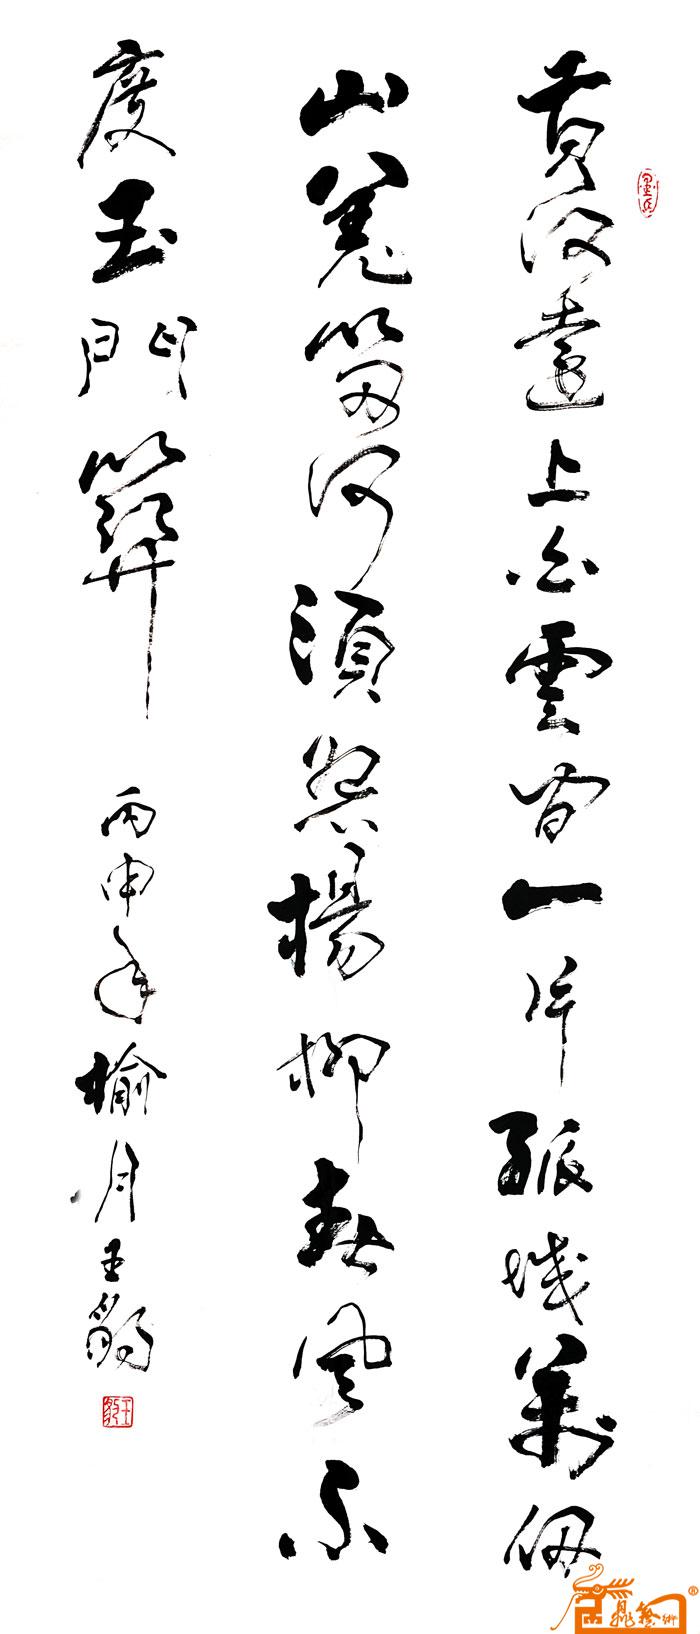 黄河遠上白雲間一片孤城萬仞
山羌笛何須怨楊柳春風不
度玉門關 丙申年榆月王豹
王豹